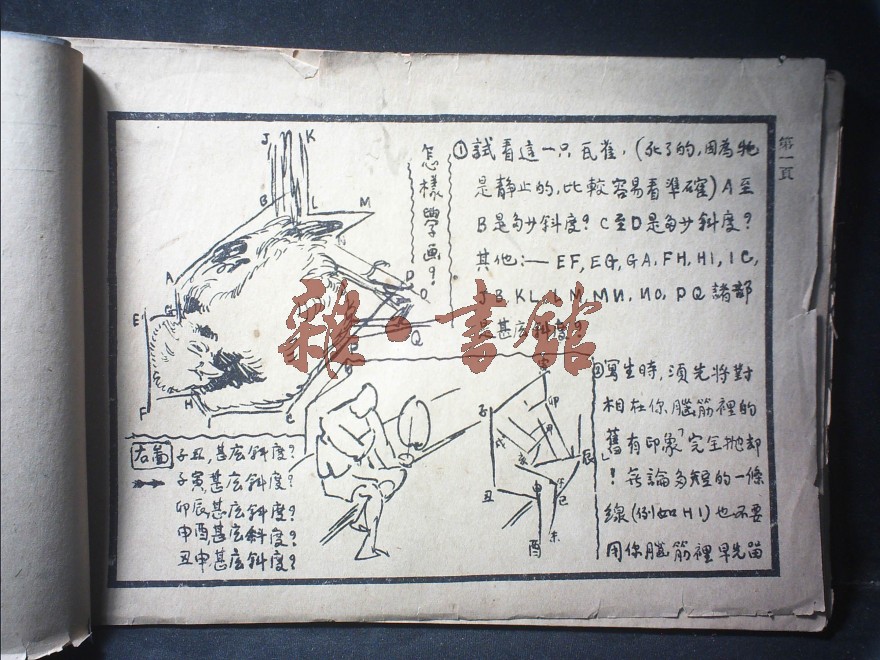 第一頁
怎樣學画?
①試看這一只瓦雀,(死了的,因為牠
是靜止的,比較容易看準確)A至
B是多少斜度?C至D是多少斜度?
其他:— EF, EG, GA, FH, HI, IC,
JB, KL, LM, MN, NO, PQ 諸部
是甚広斜度?
②寫生時,須先將對
相在你腦筋裡的
「舊有印象」完全抛却
!無論多短的一條
線(例如HI)也不要
用你腦筋裡早先留
右圖
子丑,甚広斜度?
子寅,甚広斜度?
卯辰,甚広斜度?
申酉,甚広斜度?
丑申,甚広斜度?
J K
B L M
N
A
D
O
E G
Q
H
F C
子 卯
戌
亥 辰
丑 申 巳
未
酉
雜·書館